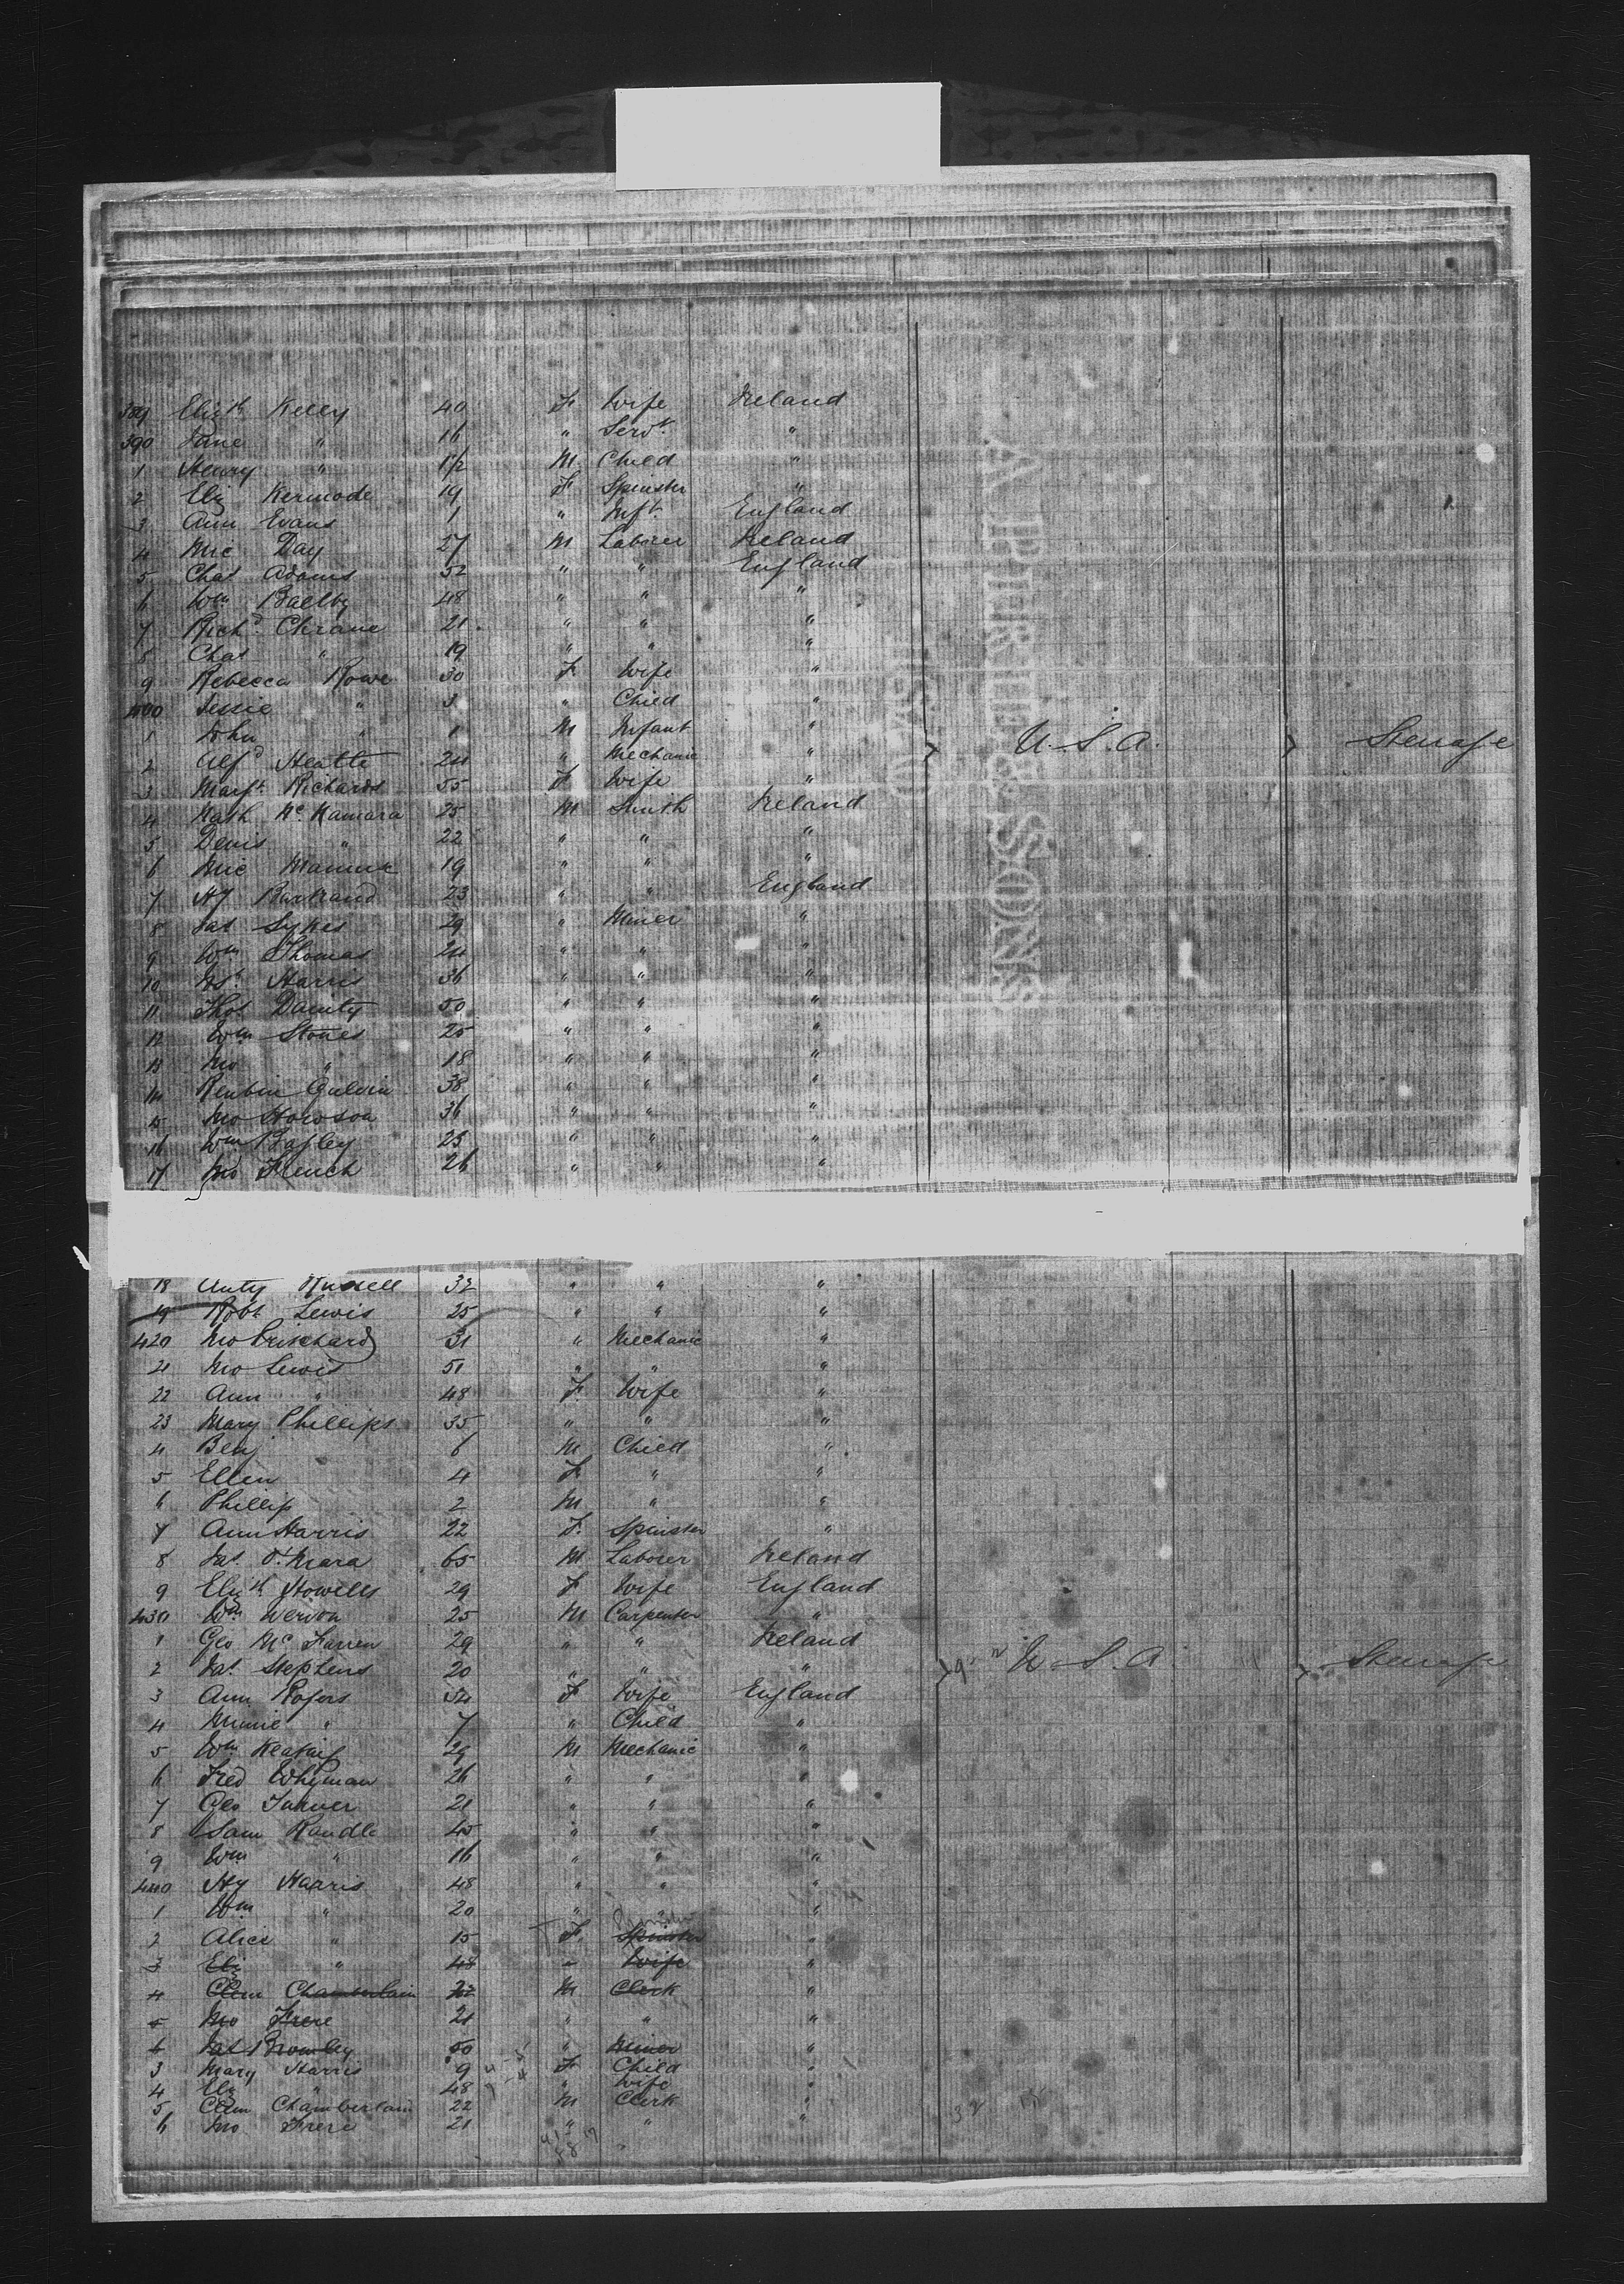 389 Elizth Kelly 40 F Wife Ireland
390 Jane " 16 " Servt "
1 Henry " 1/2 M Child "
2 Eliz Kermode 19 F Spinster "
3 Ann Evans 1 " Inft England
4 Mic Day 27 M Laborer Ireland
5 Chas Adams 52 " " England
6 Wm 48 " " "
7 Richd Chrane 21 " " "
8 Chas " 19 " " "
9 Rebecca Rowe 30 F Wife "
400 Jessie " 3 " Child "
1 John " 1 M Infant "
2 Alfd 24 " Mechanic " U.S.A. Steerage
3 Margt Richards 55 F Wife "
4 McNamara 25 M Smith Ireland
5 Denis " 22 " " "
6 Mic 19 " " "
7 Hy Bartrand 23 " " England
8 Jas Sykes 29 " Miner "
9 Wm Thomas 24 " " "
10 Harris 36 " " "
11 Thos Dainty 50 " " "
12 Wm Stones 25 " " "
13 Jno " 18 " " "
14 Reubin 38 " " "
15 Jno Howson 36 " " "
16 Wm Bagley 23 " " "
17 Jno French 26 " " "
18 Anty Russell 32 " " "
19 Robt Lewis 25 " " "
420 Jno Prischard 31 " Mechanic "
21 Jno Lewis 51 " " "
22 Ann " 48 F Wife "
23 Mary Phillips 35 " " "
4 Benj 6 M Child "
5 Ellen 4 F " "
6 Phillip 2 M " "
7 Ann Harris 22 F Spinster "
8 Jas O'Mara 65 M Laborer Ireland
9 Elizth Howells 29 F Wife England
430 Wm 25 M Carpenter "
1 Geo McFarren 29 " " Ireland
2 Jas Stephens 20 " " " U.S.A. Steerage
3 Ann Rogers 34 F Wife England
4 Minie " 7 " Child "
5 Wm Keating 29 M Mechanic "
6 Fred Whyman 26 " " "
7 Geo Turner 21 " " "
8 Sam Randle 45 " " "
9 Wm " 16 " " "
440 Hy Harris 48 " " "
1 Wm " 20 " " "
2 Alice " 15 F Spinster "
3 Eliz " 48 " Wife "
4 Clem Chamberlain 22 M Clerk "
5 Jno Frere 21 " " "
6 Jas Bromley 50 " Miner "
3 Mary Harris 9 F Child "
4 Eliz " 48 " Wife "
5 Clem Chamberlain 22 M Clerk "
6 Jno Frere 21 " " "